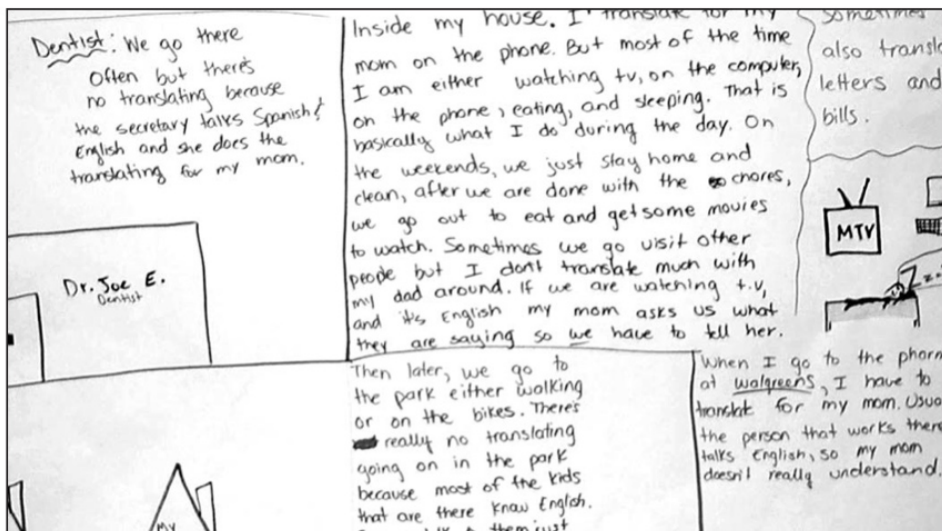 Dentist: We go there
Often but there's
no translating because
the secretary talks Spanish &
English and she does the
translating for my mom.
Dr. Joe E.
Dentist
Inside my house. I translate for my
mom on the phone. But most of the time
I am either watching tv, on the computer,
on the phone, eating, and sleeping. That is
basically what I do during the day. On
the weekends, we just stay home and
clean, after we are done with the chores,
we go out to eat and get some movies
to watch. Sometimes we go visit other
people but I don't translate much with
my dad around. If we are watching t.v,
and it's English my mom asks us what
they are saying so we have to tell her.
Sometimes
also transl
letters and
bills.
MTV
Zz..
Then later, we go to
the park either walking
or on the bikes. There's
really no translating
going on in the park
because most of the kids
that are there know English.
them just
My
When I go to the pharm
at walgreens, I have to
translate for my mom. Usua
the person that works there
talks English, so my mom
doesn't really understand.